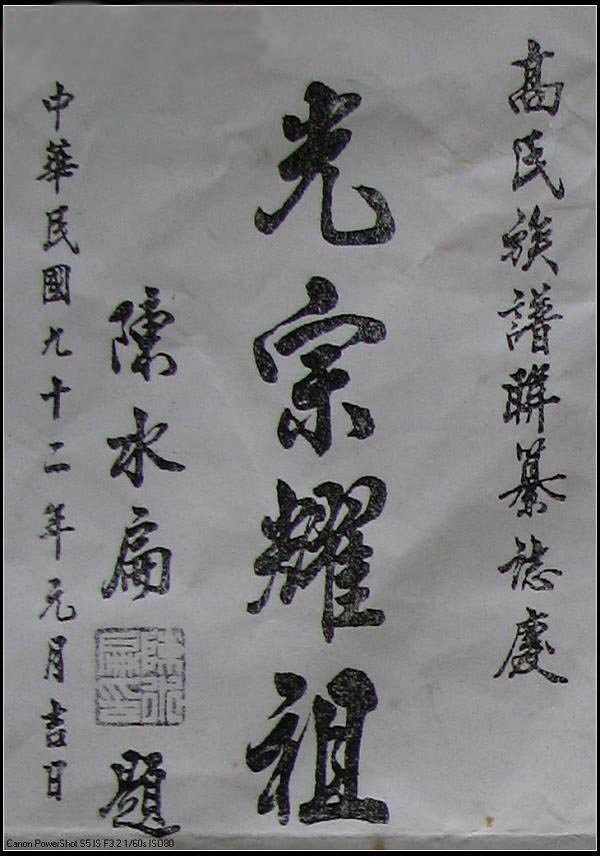 高氏族譜聯纂誌慶
光宗耀祖
陳水扁
陳水扁印
題
中華民國九十二年元月吉日
Canon PowerShot S5 IS F3.2 1/60s ISO80